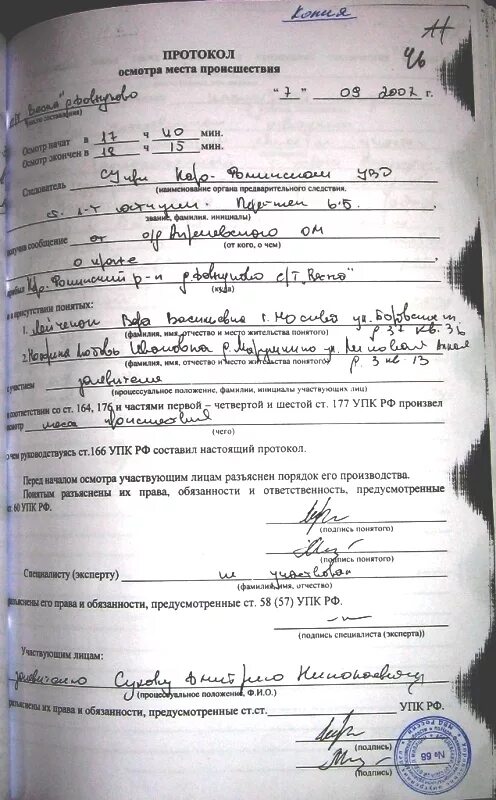 Копия
46
ПРОТОКОЛ
осмотра места происшествия
"7" 09 2007 г.
(место составления)
Осмотр начат в 17 ч 40 мин.
Осмотр окончен в 18 ч 15 мин.
Следователь СУ при Наро-Фоминском УВД
(наименование органа предварительного следствия,
ст. л-т юстиции
звание, фамилия, инициалы)
получив сообщение от о/д Апрелевского ОМ
(от кого, о чем)
о краже
прибыл Наро-Фоминский р-н д. Фоминское с/т
(куда)
и в присутствии понятых:
1. Вера Васильевна г. Москва ул. Боровское ш.
д. 37 кв. 36
(фамилия, имя, отчество и место жительства понятого)
2. Любовь Ивановна д. Марушкино ул. Липовая Аллея
(фамилия, имя, отчество и место жительства понятого)
д. 3 кв. 13
с участием заявителя
(процессуальное положение, фамилии, инициалы участвующих лиц)
в соответствии со ст. 164, 176 и частями первой – четвертой и шестой ст. 177 УПК РФ произвел
осмотр места происшествия
(чего)
о чем руководствуясь ст.166 УПК РФ составил настоящий протокол.
Перед началом осмотра участвующим лицам разъяснен порядок его производства.
Понятым разъяснены их права, обязанности и ответственность, предусмотренные
ст. 60 УПК РФ.
(подпись понятого)
(подпись понятого)
Специалисту (эксперту) не участвовал
(фамилия, имя, отчество)
разъяснены его права и обязанности, предусмотренные ст. 58 (57) УПК РФ.
(подпись специалиста (эксперта))
Участвующим лицам:
заявителю Сухову Дмитрию Николаевичу
(процессуальное положение, Ф.И.О.)
разъяснены их права и обязанности, предусмотренные ст.ст. УПК РФ.
(подпись)
(подпись)
№ 68